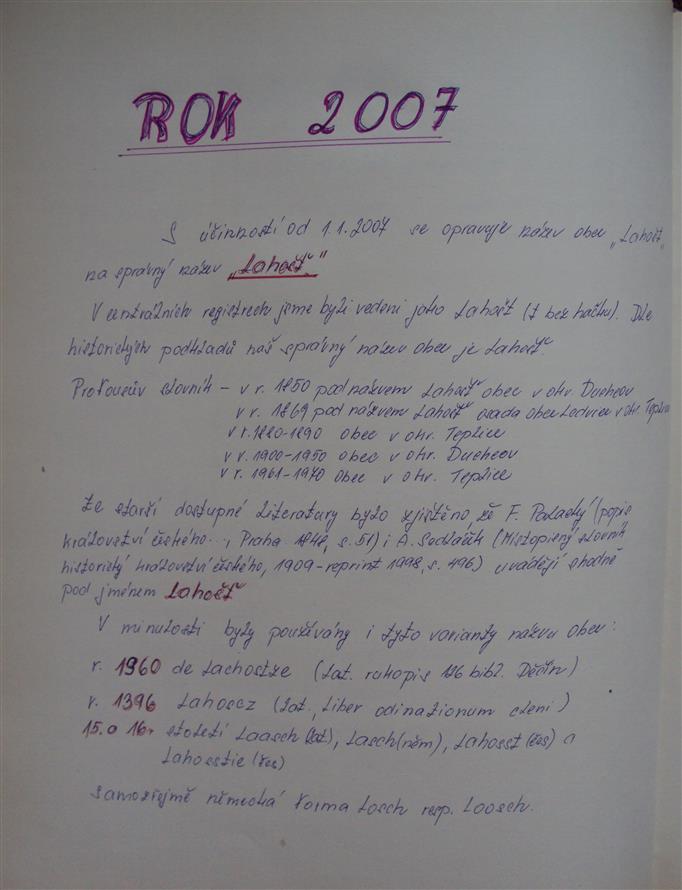 ROK 2007
S účinností od 1.1.2007 se opravuje název obec „Lahošt"
na správný název „Lahošť"
V centrálních registrech jsme byli vedeni jako Lahošt (t bez háčku). Dle
historických podkladů náš správný název obec je Lahošť.
Profousův slovník – v r. 1850 pod názvem Lahošť obec v okr. Duchcov
v r. 1869 pod názvem Lahošť osada obec Ledvice v okr. Teplice
v r. 1880-1890 obec v okr. Teplice
v r. 1900-1950 obec v okr. Duchcov
v r. 1961-1970 obec v okr. Teplice
Ze starší dostupné literatury bylo zjištěno, že F. Palacký (popis
království českého..., Praha 1848, s. 51) i A. Sedláček (Místopisný slovník
historický království českého, 1909-reprint 1998, s. 496) uvádějí shodně
pod jménem Lahošť
V minulosti byly používány i tyto varianty názvu obec:
r. 1960 de Lachostze (Lat. rukopis 126 bibl. Děčín)
r. 1396 Lahoscz (Lat., Liber odinationum cleni)
15. a 16. století Laasch (lat), Lasch (něm), Lahosst (čes) a
Lahosstie (čes)
Samozřejmě německá forma Losch resp. Loosch.